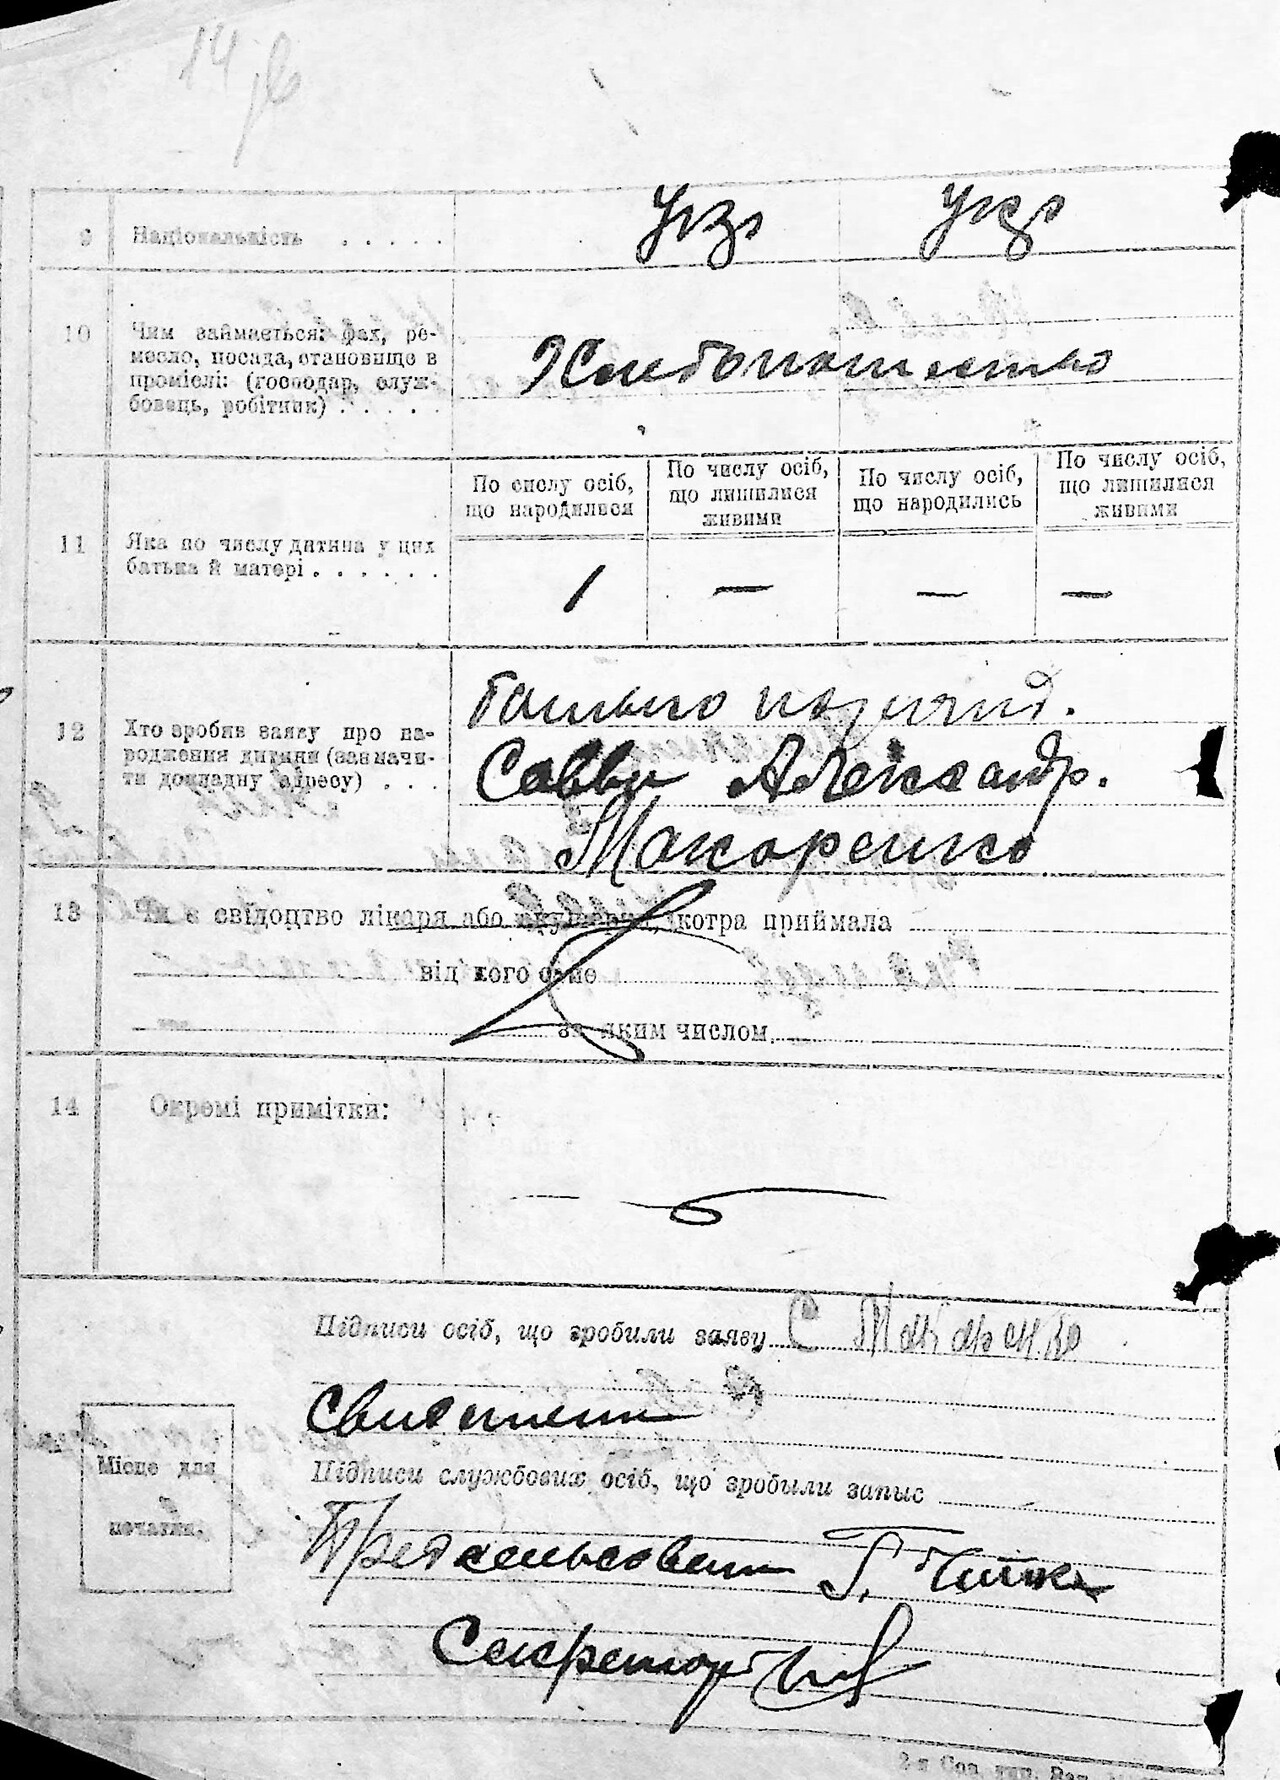 14
9 Національність . . . . . Укр Укр
10 Чим займається: фах, ре-
месло, посада, становище в
промислі: (господар, служ-
бовець, робітник) . . . . .
Хлебопашество
По числу осіб, що народилися
По числу осіб, що лишилися живими
По числу осіб, що народились
По числу осіб, що лишилися живими
11 Яка по числу дитина у цих
батька й матері . . . . . .
1 — — —
12 Хто зробив заяву про на-
родження дитини (зазначи-
ти докладну адресу) . . .
батько
Савви Александр.
Макаренко
13 Чи є свідоцтво лікаря або акушерки, котра приймала
від кого саме
за яким числом
14 Окремі примітки:
Підписи осіб, що зробили заяву С Макаренко
Свидетели
Підписи службових осіб, що зробыли запыс
Місце для
печатки.
Предсельсовета Г.
Секретарь